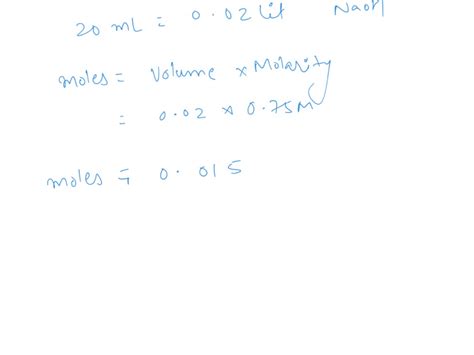 20 mL = 0.02 lit NaOH
moles = Volume × Molarity
= 0.02 × 0.75M
moles = 0.015